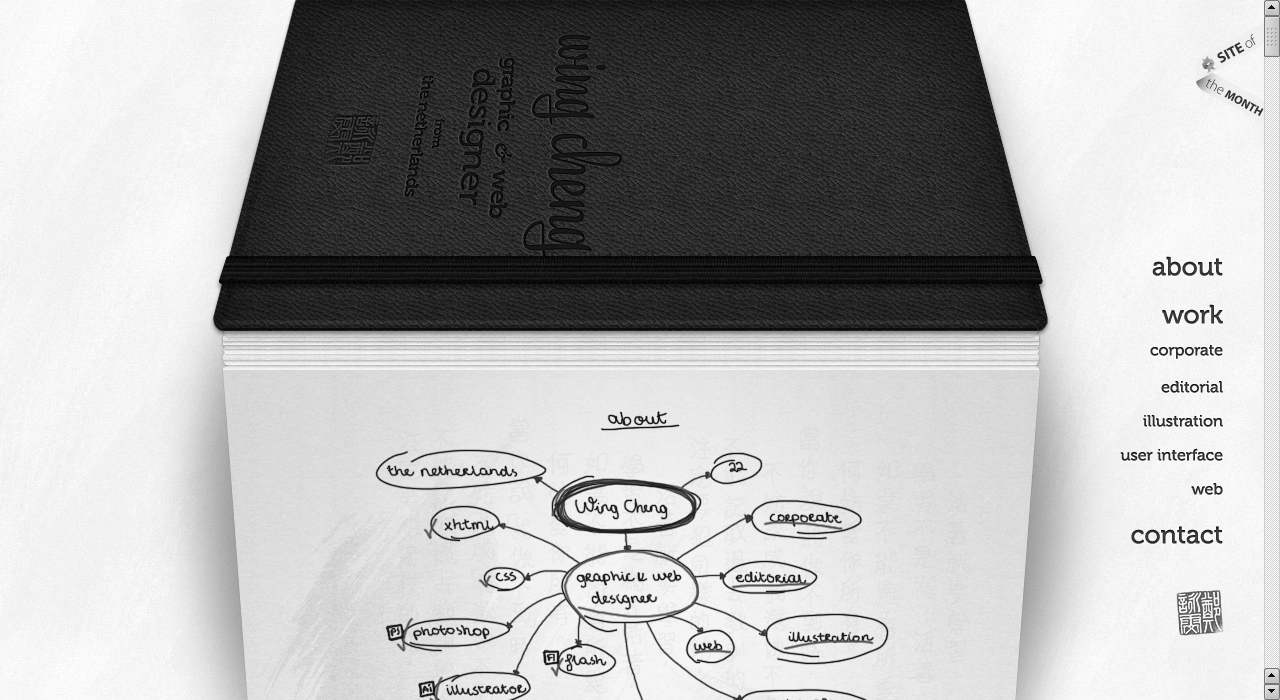 wing cheng
graphic & web
designer
from
the netherlands
SITE of
the MONTH
about
work
corporate
editorial
illustration
user interface
web
contact
about
the netherlands
22
Wing Cheng
xhtml
corporate
css
graphic & web
designer
editorial
Ps
photoshop
illustration
web
Fl
flash
Ai
illustrator